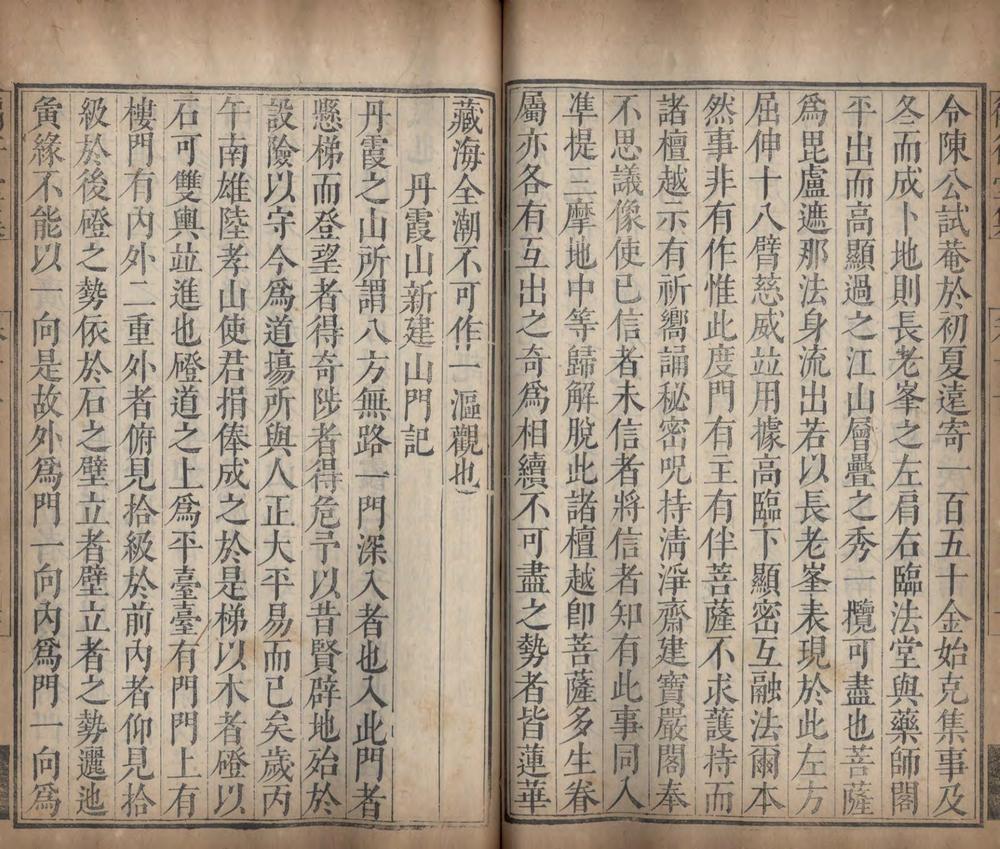 令陳公試菴於初夏遠寄一百五十金始克集事及
冬而成卜地則長老峯之左肩右臨法堂與藥師閣
平出而高顯過之江山層疊之秀一攬可盡也菩薩
爲毘盧遮那法身流出若以長老峯表現於此左方
屈伸十八臂慈威並用據高臨下顯密互融法爾本
然事非有作惟此度門有主有伴菩薩不求護持而
諸檀越示有祈嚮誦秘密呪持淸淨齋建寶嚴閣奉
不思議像使已信者未信者將信者知有此事同入
準提三摩地中等歸解脫此諸檀越卽菩薩多生眷
屬亦各有互出之奇爲相續不可盡之勢者皆蓮華
藏海全潮不可作一漚觀也
丹霞山新建山門記
丹霞之山所謂八方無路一門深入者也入此門者
懸梯而登望者得奇陟者得危予以昔賢辟地始於
設險以守今爲道場所與人正大平易而已矣歲丙
午南雄陸孝山使君捐俸成之於是梯以木者磴以
石可雙輿並進也磴道之上爲平臺臺有門門上有
樓門有內外二重外者俯見拾級於前內者仰見拾
級於後磴之勢依於石之壁立者壁立者之勢邐迆
夤緣不能以一向是故外爲門一向內爲門一向爲